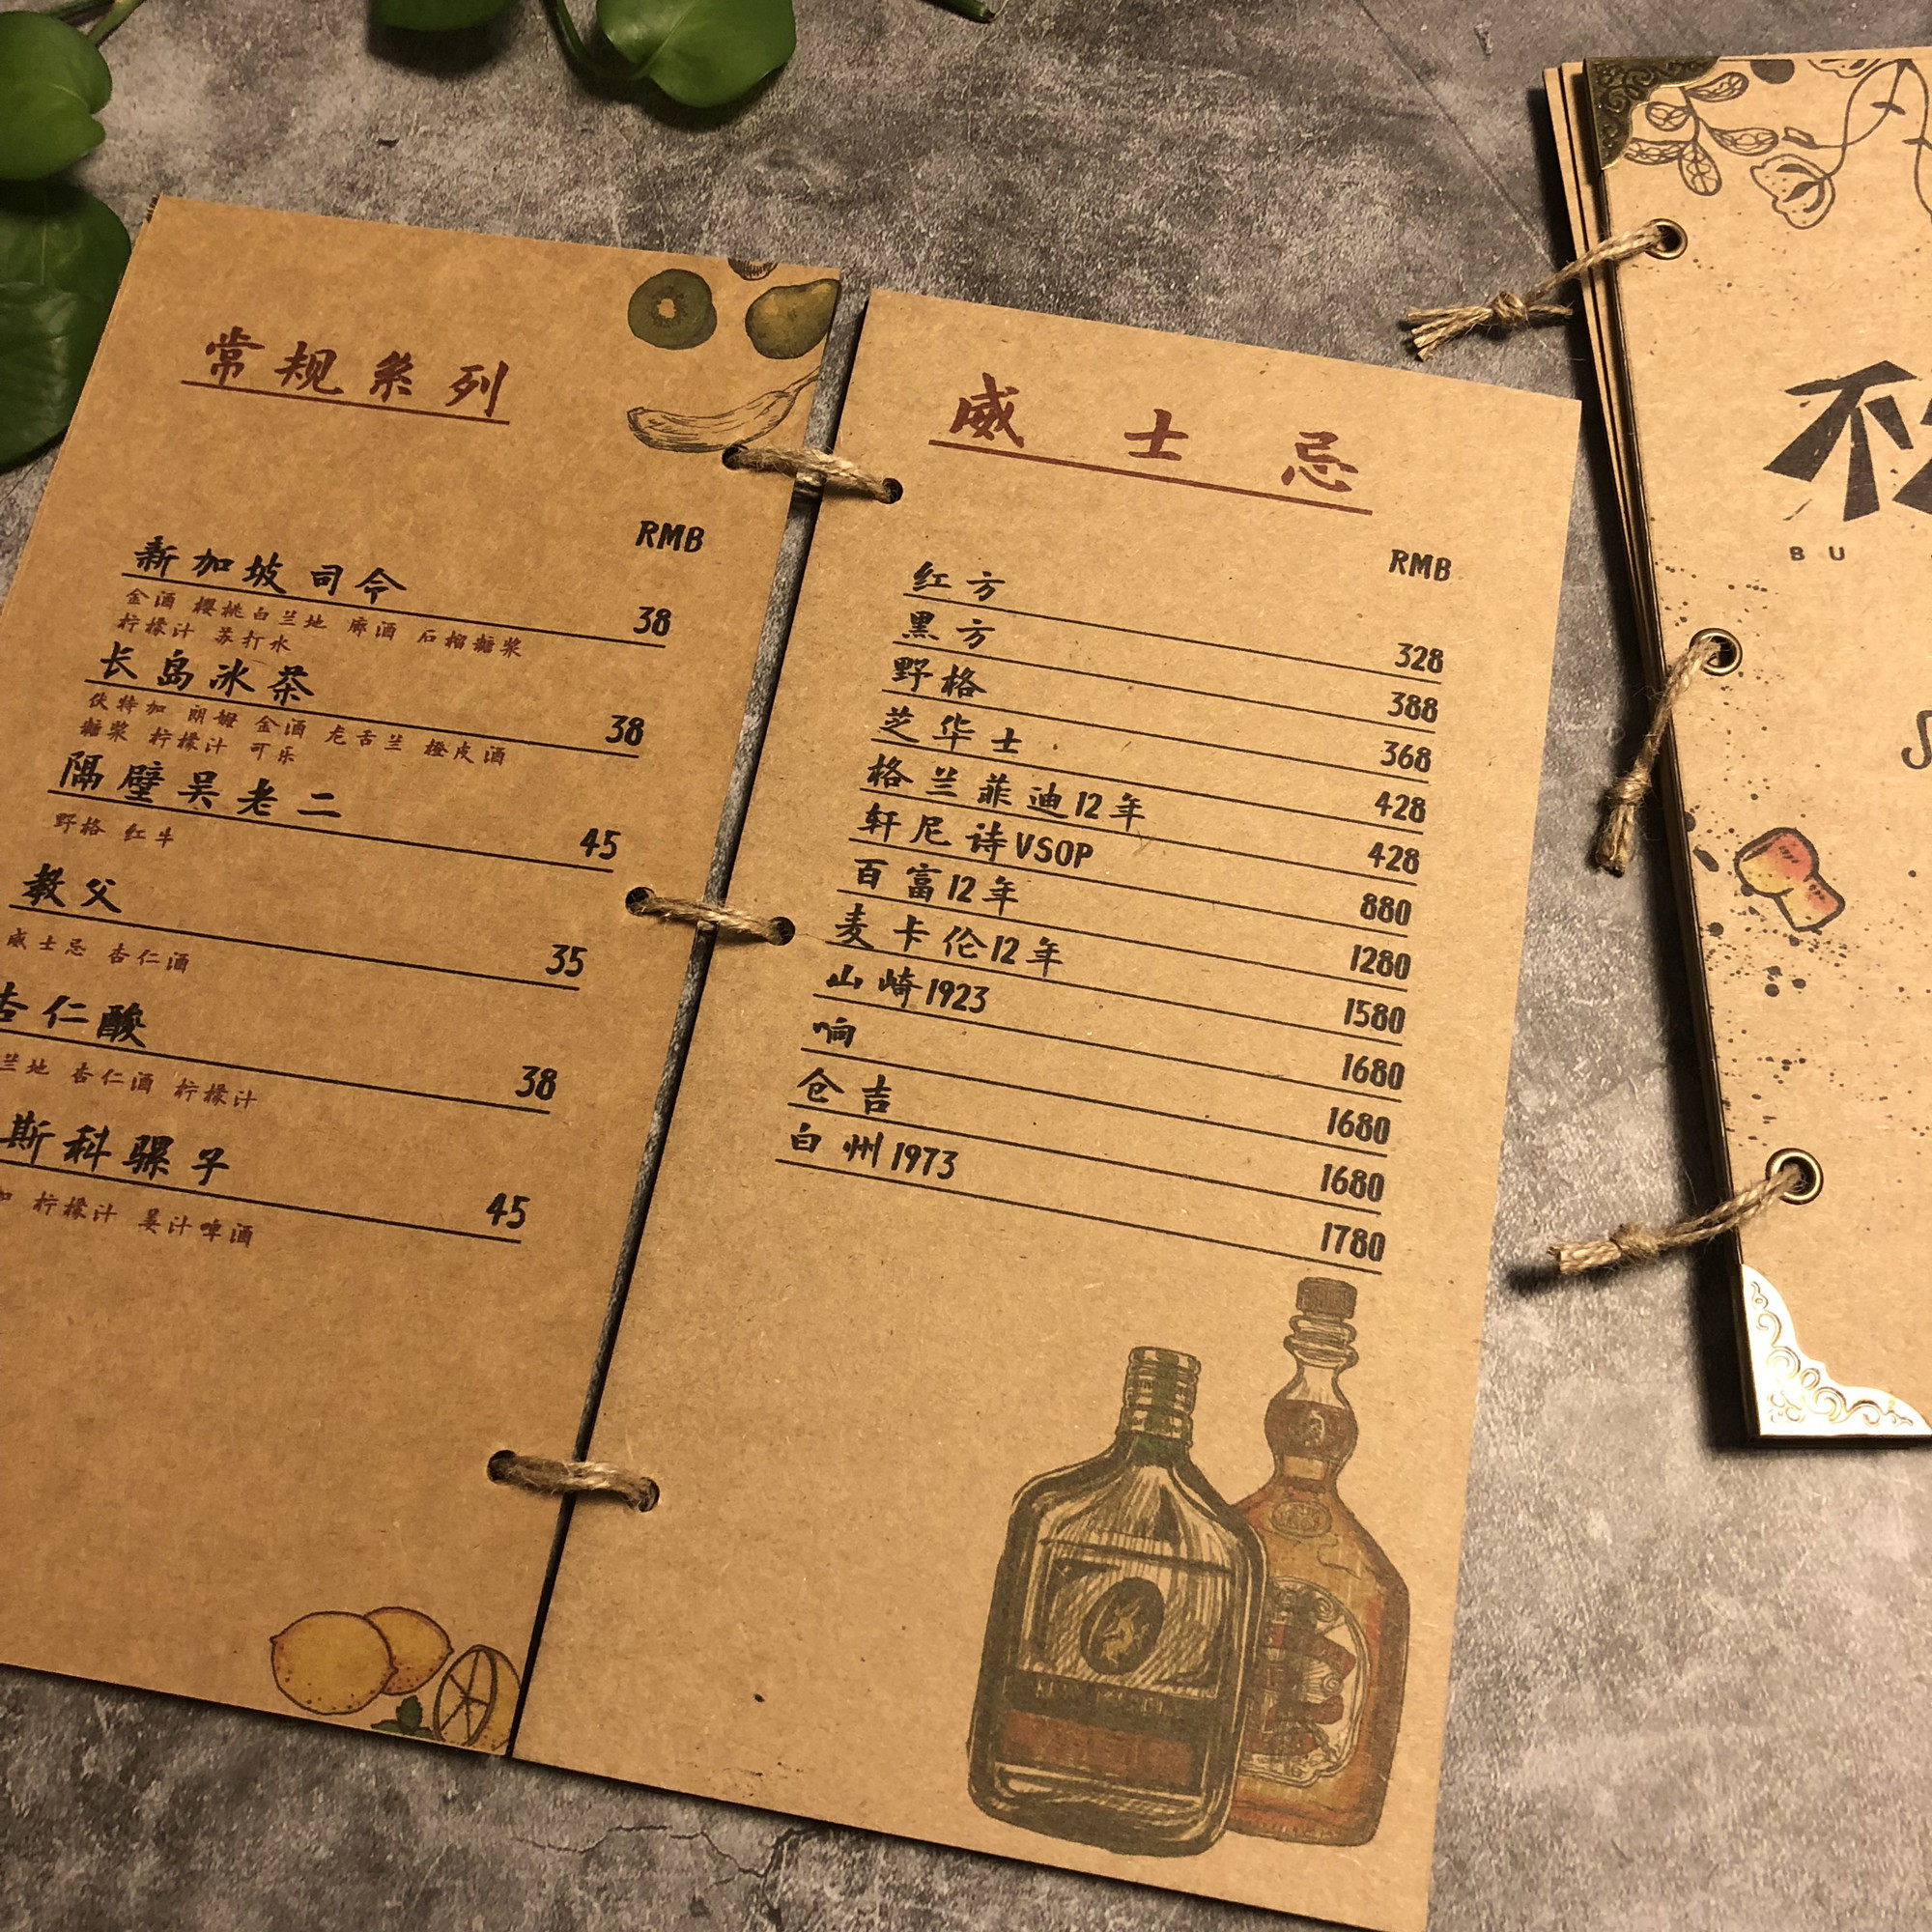 常规系列
RMB
新加坡司令 38
金酒 樱桃白兰地 廊酒 石榴糖浆
柠檬汁 苏打水
长岛冰茶 38
伏特加 朗姆 金酒 龙舌兰 橙皮酒
糖浆 柠檬汁 可乐
隔壁吴老二 45
野格 红牛
教父 35
威士忌 杏仁酒
杏仁酸 38
兰地 杏仁酒 柠檬汁
斯科骡子 45
加 柠檬汁 姜汁啤酒
威士忌
RMB
红方 328
黑方 388
野格 368
芝华士 428
格兰菲迪12年 428
轩尼诗VSOP 880
百富12年 1280
麦卡伦12年 1580
山崎1923 1680
响 1680
仓吉 1680
白州1973 1780
不
BU